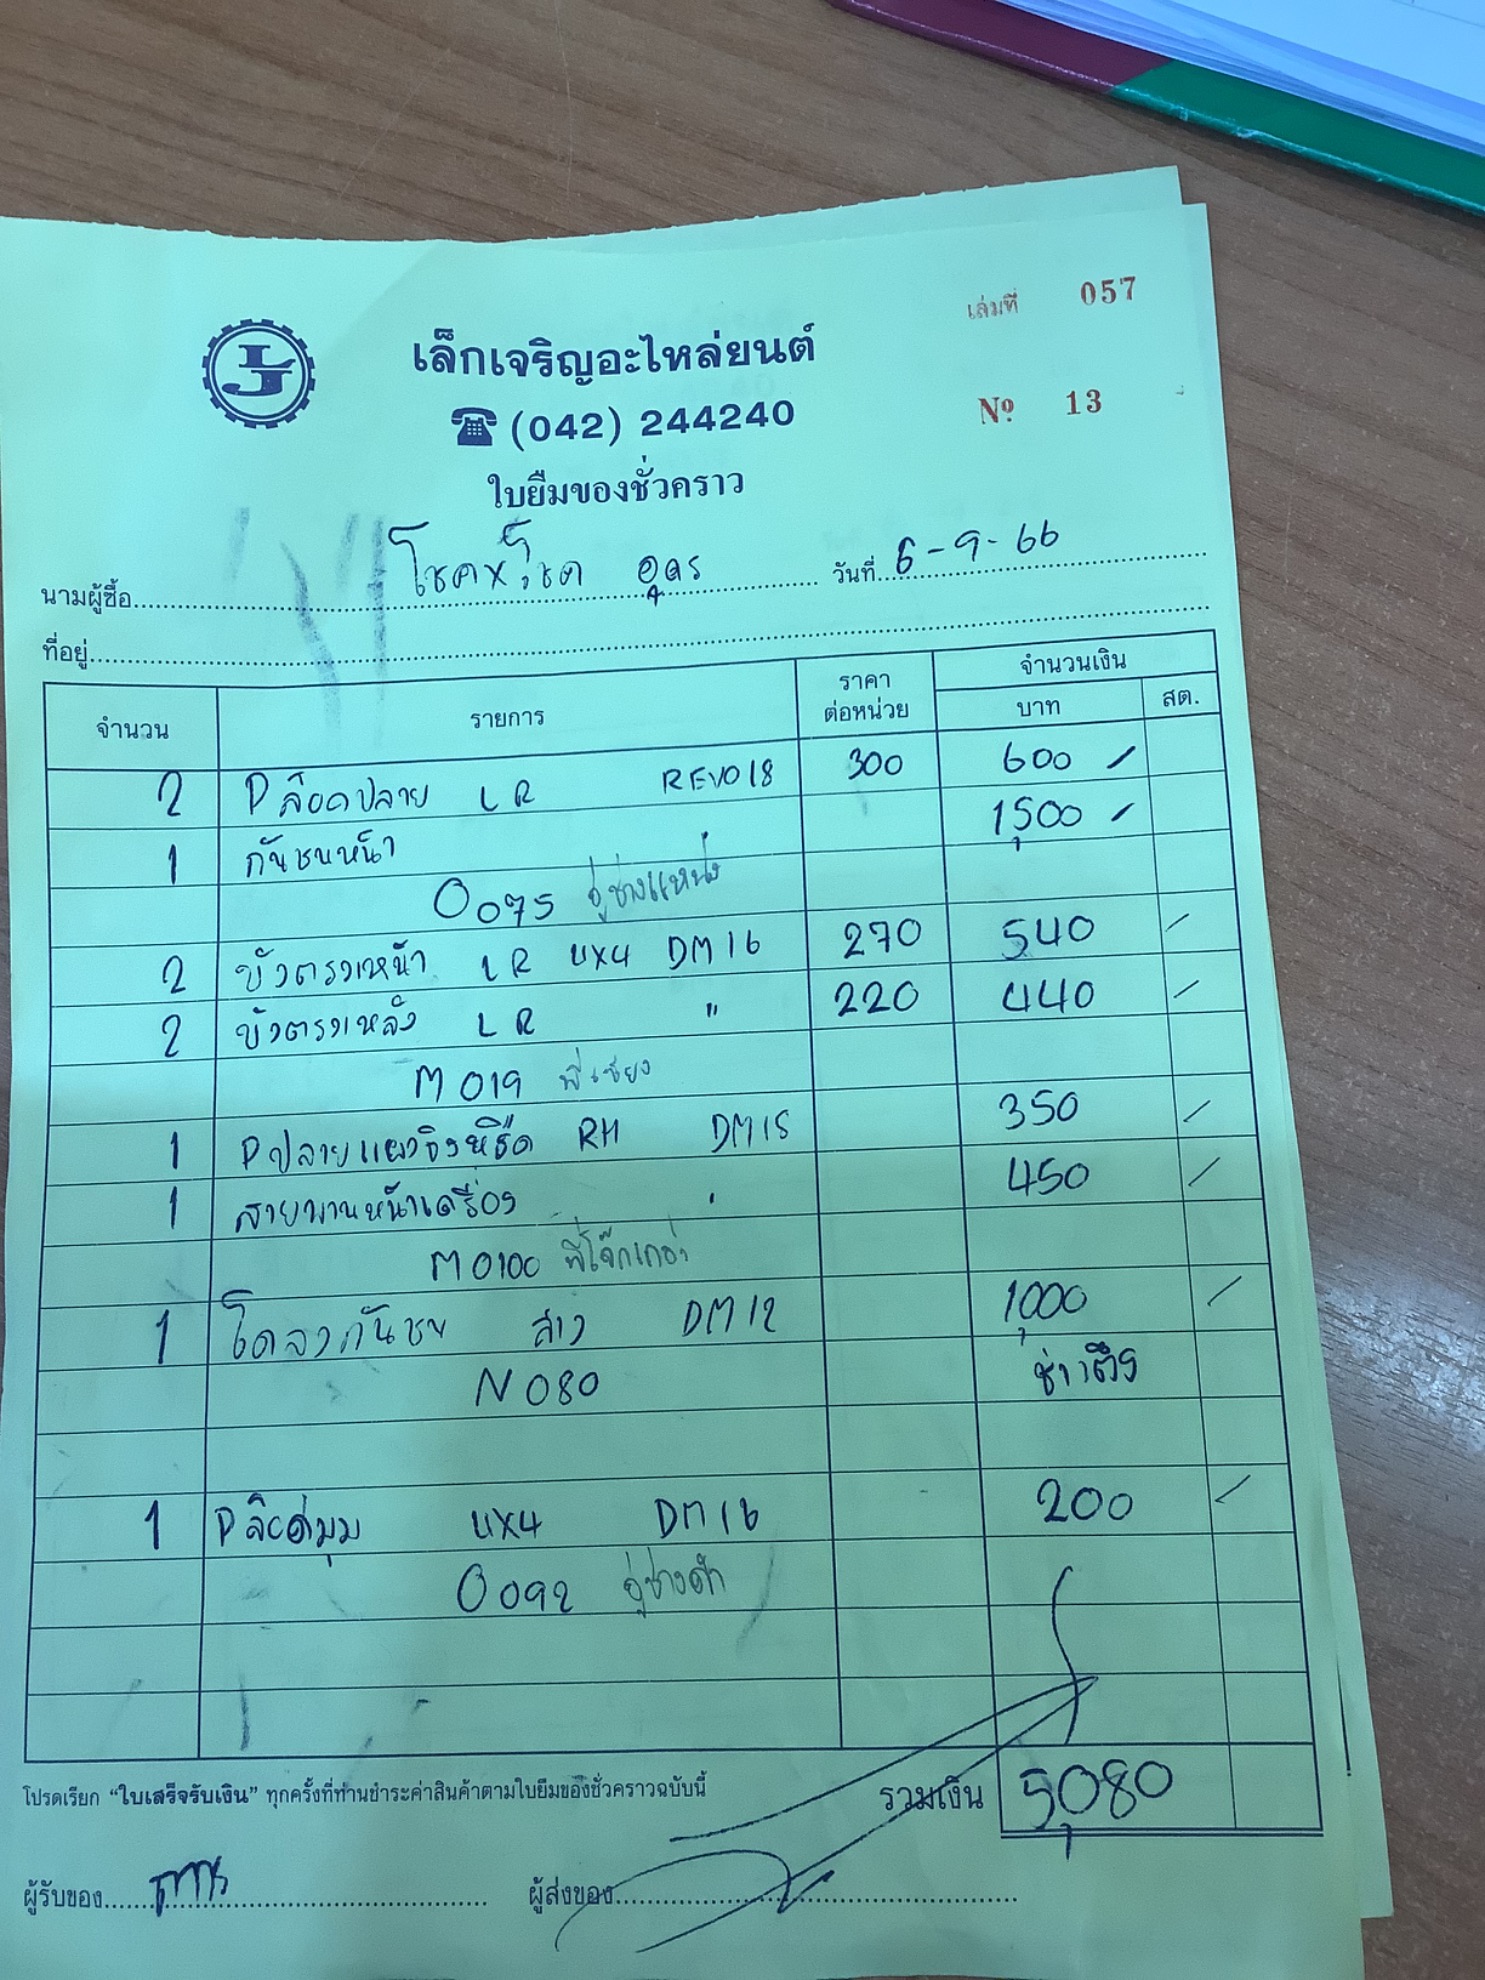 เล่มที่ 057
เล็กเจริญอะไหล่ยนต์
(042) 244240
Nº 13
ใบยืมของชั่วคราว
นามผู้ซื้อ โชคห้าโชค อุดร วันที่ 6-9-66
ที่อยู่
จำนวน รายการ ราคาต่อหน่วย จำนวนเงิน
บาท สต.
2 Pล๊อคปลาย LR REVO18 300 600
1 กันชนหน้า 1,500
O075 อู่ช่างแหน่ง
2 บังตรงหน้า LR 4X4 DM16 270 540
2 บังตรงหลัง LR " 220 440
M019 พี่เชียง
1 Pปลายแผง RH DM15 350
1 สายพานหน้าเครื่อง " 450
M0100 พี่โจ๊กเกอร์
1 โดลงกันชน ล่าง DM12 1,000
N080
1 Pล๊อคมุม 4X4 DM16 200
O092 อู่ช่างดำ
โปรดเรียก "ใบเสร็จรับเงิน" ทุกครั้งที่ท่านชำระค่าสินค้าตามใบยืมของชั่วคราวฉบับนี้ รวมเงิน 5,080
ผู้รับของ ผู้ส่งของ